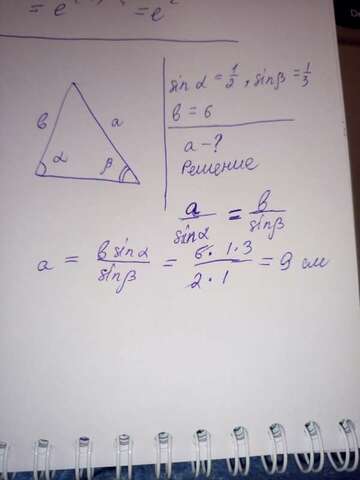 = e = e²
в a α β
sin α = 1/2, sin β = 1/3
в = 6
a - ?
Решение
a/sin α = в/sin β
a = в sin α/sin β = 6 · 1 · 3/2 · 1 = 9 см